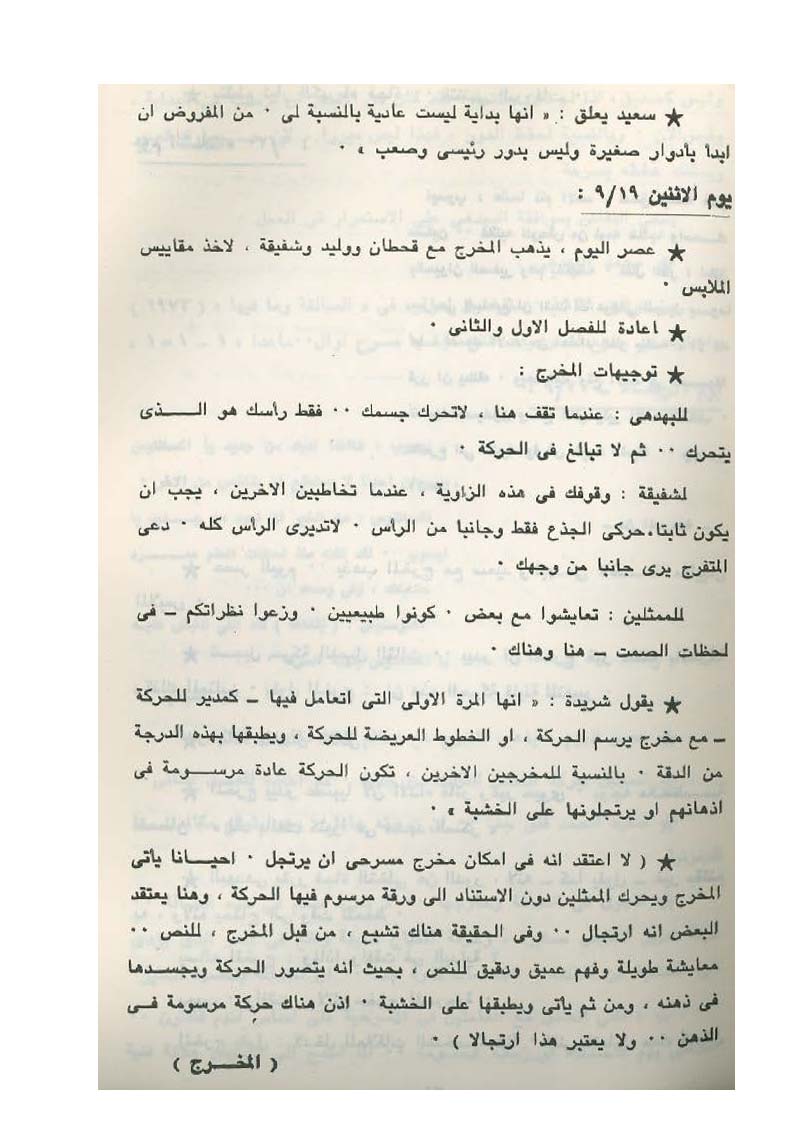 ★ سعيد يعلق : « انها بداية ليست عادية بالنسبة لى ٠ من المفروض ان
ابدأ بأدوار صغيرة وليس بدور رئيسى وصعب » ٠
يوم الاثنين ٩/١٩ :
★ عصر اليوم ، يذهب المخرج مع قحطان ووليد وشفيقة ، لاخذ مقاييس
الملابس ٠
★ اعادة للفصل الاول والثانى ٠
★ توجيهات المخرج :
للبهدهى : عندما تقف هنا ، لاتحرك جسمك ٠٠ فقط رأسك هو الـــذى
يتحرك ٠٠ ثم لا تبالغ فى الحركة ٠
لشفيقة : وقوفك فى هذه الزاوية ، عندما تخاطبين الاخرين ، يجب ان
يكون ثابتا٠حركى الجذع فقط وجانبا من الرأس ٠ لاتديرى الرأس كله ٠ دعى
المتفرج يرى جانبا من وجهك ٠
للممثلين : تعايشوا مع بعض ٠ كونوا طبيعيين ٠ وزعوا نظراتكم ــ فى
لحظات الصمت ــ هنا وهناك ٠
★ يقول شريدة : « انها المرة الاولى التى اتعامل فيها ــ كمدير للحركة
ــ مع مخرج يرسم الحركة ، او الخطوط العريضة للحركة ، ويطبقها بهذه الدرجة
من الدقة ٠ بالنسبة للمخرجين الاخرين ، تكون الحركة عادة مرســـومة فى
اذهانهم او يرتجلونها على الخشبة » ٠
★ ( لا اعتقد انه فى امكان مخرج مسرحى ان يرتجل ٠ احيـــانا يأتى
المخرج ويحرك الممثلين دون الاستناد الى ورقة مرسوم فيها الحركة ، وهنا يعتقد
البعض انه ارتجال ٠٠ وفى الحقيقة هناك تشبع ، من قبل المخرج ، للنص ٠٠
معايشة طويلة وفهم عميق ودقيق للنص ، بحيث انه يتصور الحركة ويجســدها
فى ذهنه ، ومن ثم يأتى ويطبقها على الخشبة ٠ اذن هناك حركة مرسومة فــى
الذهن ٠٠ ولا يعتبر هذا ارتجالا ) ٠
( المخـــرج )